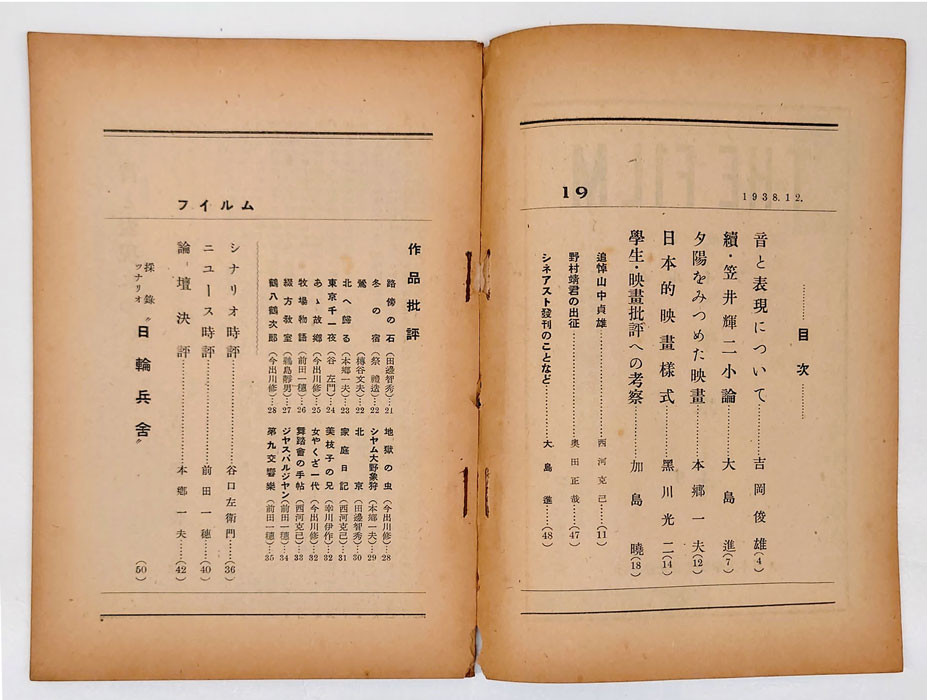 19
1938.12.
目次
音と表現について 吉岡俊雄(4)
續・笠井輝二小論 大島進(7)
夕陽をみつめた映畫 本郷一夫(12)
日本的映畫様式 黑川光二(14)
學生・映畫批評への考察 加島曉(18)
追悼山中貞雄 西河克己(11)
野村靖君の出征 奥田正哉(47)
シネアスト發刊のことなど 大島進(48)
フイルム
作品批評
路傍の石(田邊智秀)21
冬の宿(祭禮造)22
鶯(樽谷文夫)22
北へ歸る(本郷一夫)23
東京千一夜(谷左門)24
あゝ故郷(今出川修)25
牧場物語(前田一穗)26
綴方教室(鵜島靜男)27
鶴八鶴次郎(今出川修)28
地獄の虫(今出川修)28
シヤム大野象狩(本郷一夫)29
北京(田邊智秀)30
家庭日記(西河克己)31
美枝子の兄(幸川伊作)32
女やくざ一代(今出川修)32
舞踏會の手帖(西河克己)33
ジヤスパルジヤン(前田一穗)34
第九交響樂(前田一穗)35
シナリオ時評 谷口左衛門(36)
ニユース時評 前田一穗(40)
論壇決評 本郷一夫(42)
採錄シナリオ “日輪兵舍” (50)